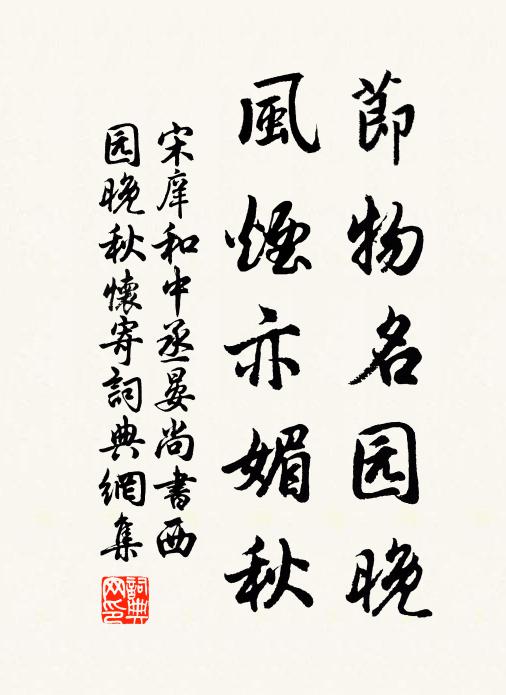 節物名园晚
風煙亦媚秋
宋庠和中丞晏尚書西
园晚秋懷寄詞典網集
詞典
网印